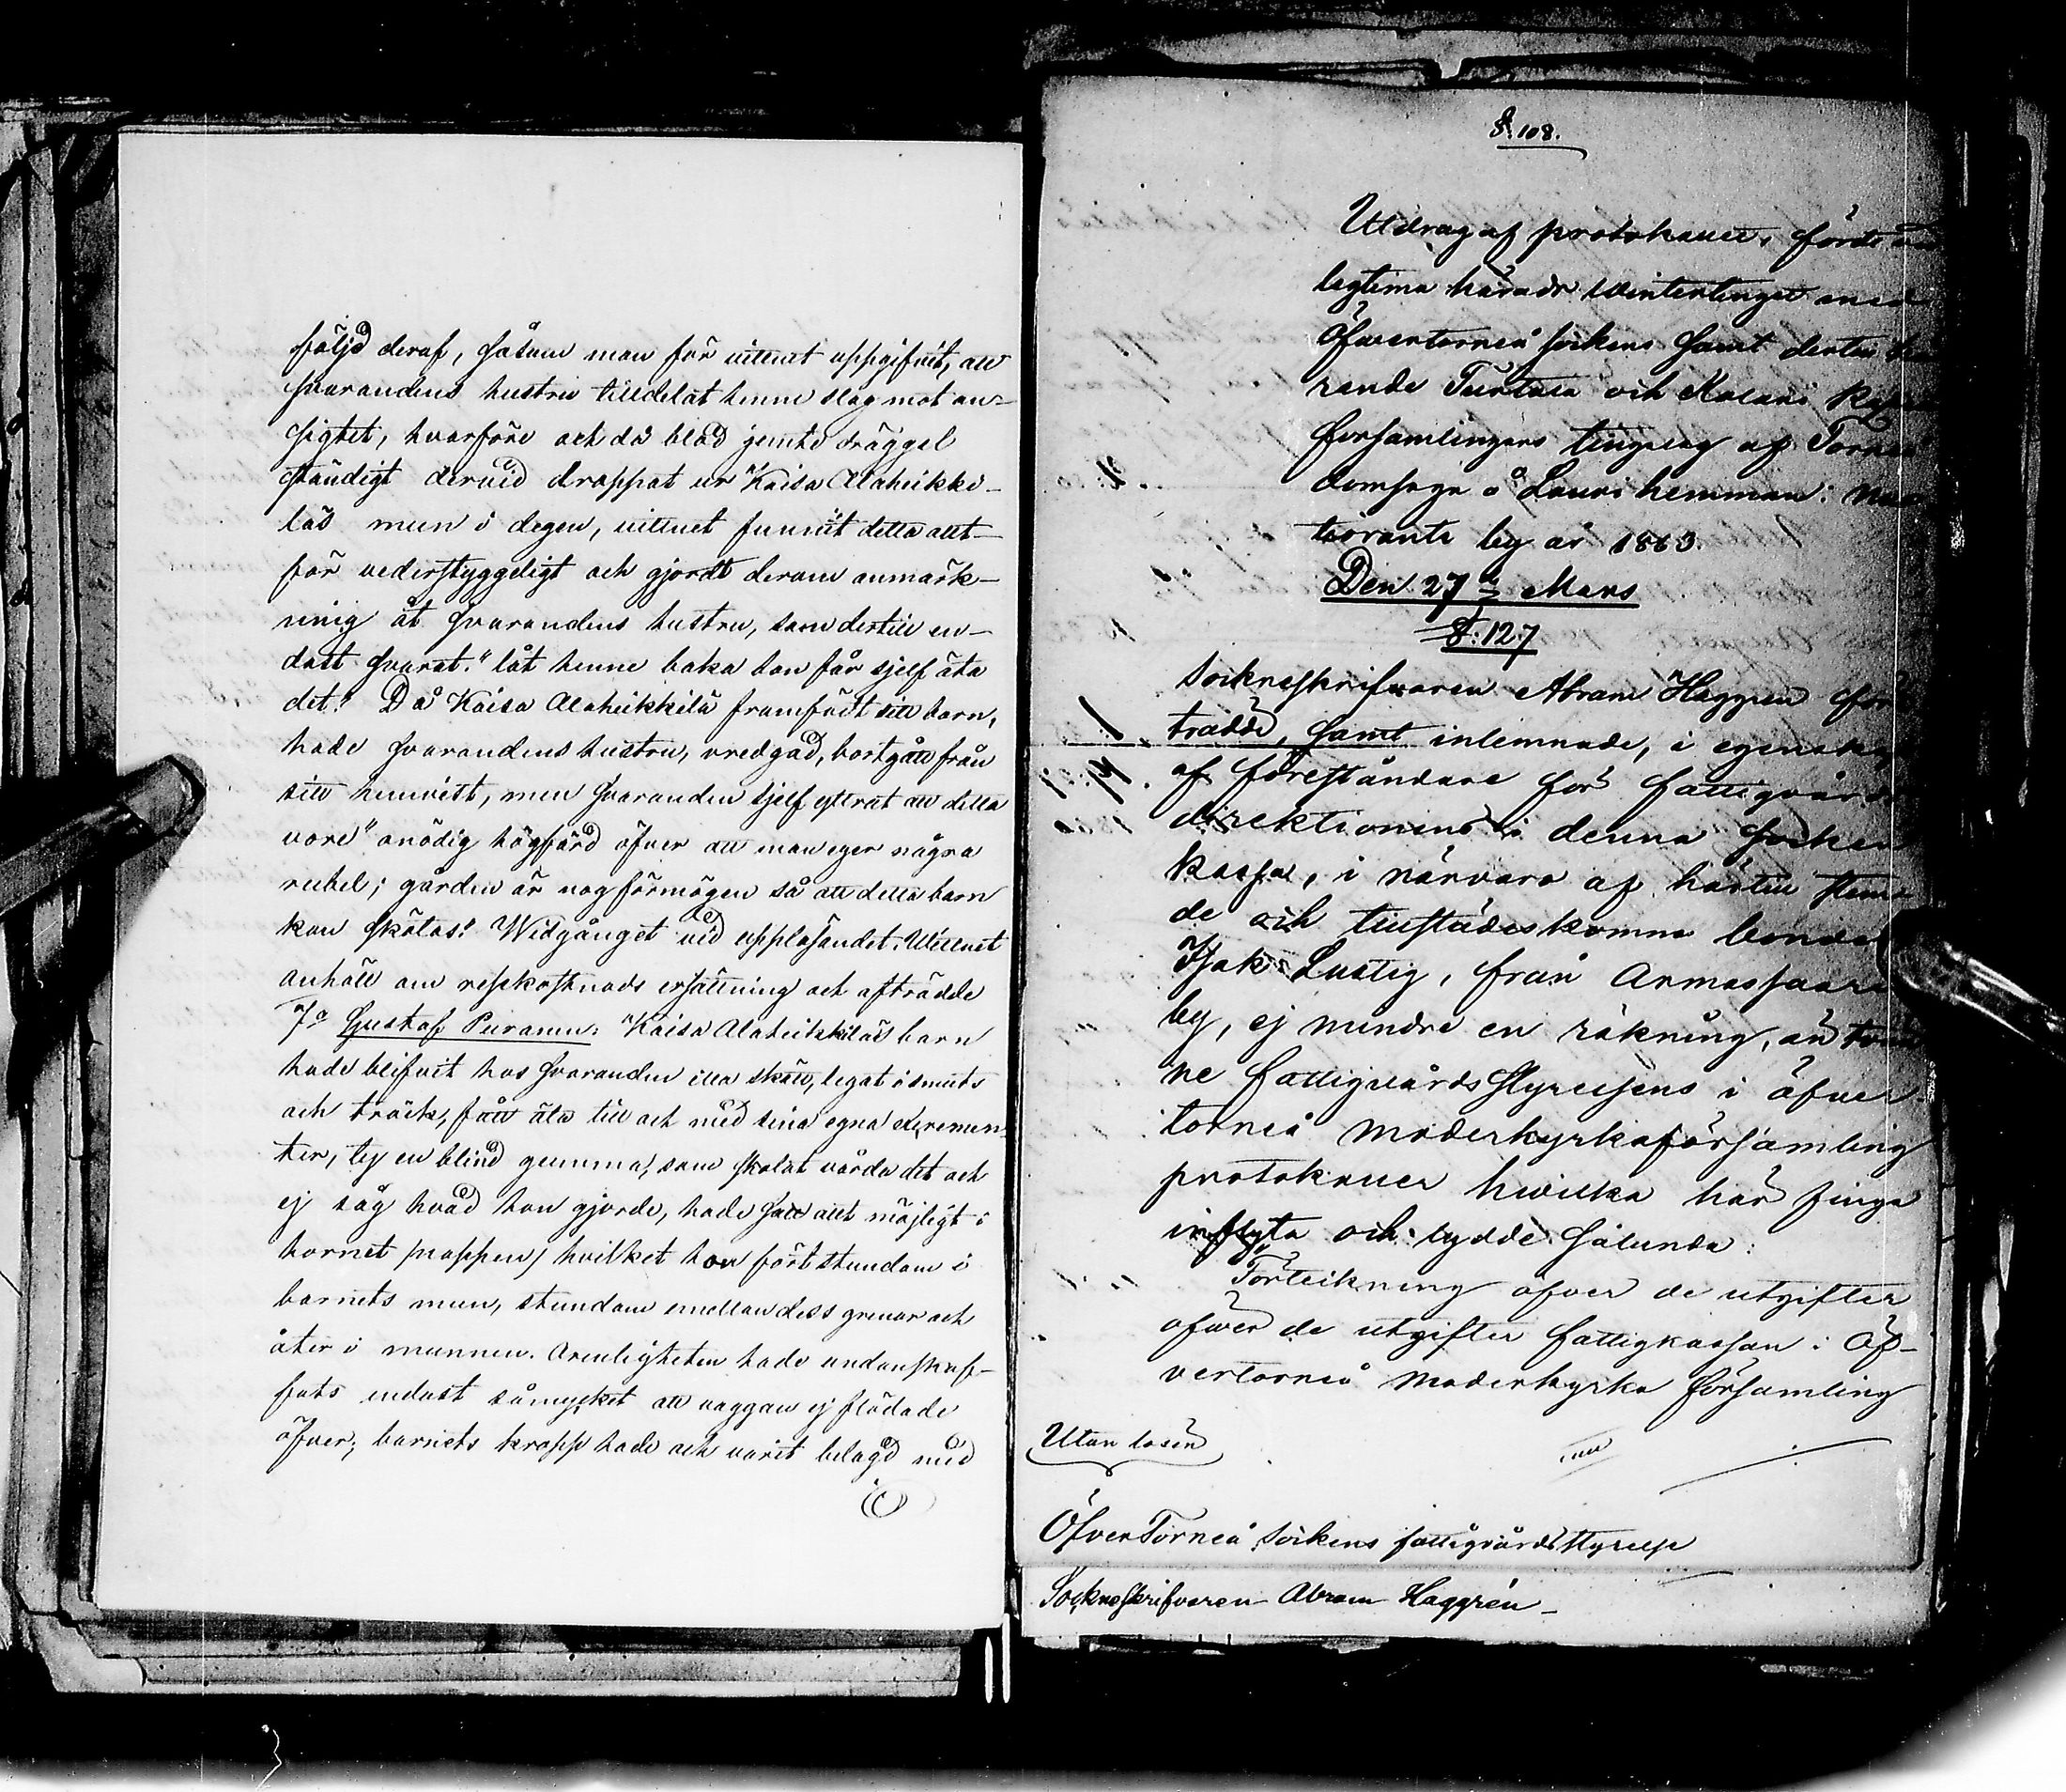 följd deraf, såsom man för vittnet uppgifvit, att
svarandens hustru tilldelat henne slag mot an-
sigtet, hvarföre och då blod jemte dräggel
ständigt dervid droppat ur Kaisa Alaheikki-
läs mun i degen, vittnet funnit detta allt-
för vederstyggeligt och gjordt derom anmärk-
ning åt svarandens hustru, som dertill en-
dast svarat: "låt henne baka hon får sjelf äta
det." Då Kaisa Alaheikkilä framfödt sitt barn,
hade svarandens hustru, vredgad, bortgått från
sitt hemvist, men svaranden sjelf yttrat att detta
vore "onödig högfärd öfver att man eger några
rubel; gården är nog förmögen så att detta barn
kan skötas." Widgånget vid uppläsandet. Vittnet
anhöll om resekostnads ersättning och afträdde
7o Gustaf Puranen: Kaisa Alaheikkiläs barn
hade blifvit hos svaranden illa skött, legat i smuts
och träck, fått äta till och med sina egna excremen-
ter, ty en blind gumma, som skolat vårda det och
ej såg hvad hon gjorde, hade satt allt möjligt i
hornet /nappen/ hvilket hon fört stundom i
barnets mun, stundom emellan dess grenar och
åter i munnen. Orenligheten hade undanskaf-
fats endast såmycket att vaggan ej flödade
öfver; barnets kropp hade och varit belagd med
§. 108.
Utdrag af protokollet, fördt
lagtima härads wintertinget med
Öfvertorneå socken samt dertill
rande Turtola och Kolari
församlingars tingslag af Torneå
domsaga å Lauri hemman i
by år 1863.
Den 27de Mars
§: 127
Sockneskrifvaren Abram Häggren före
trädde, samt inlemnade, i egenskap
af föreståndare för fattigvårds
direktionens i denna socken
kassa, i närvaro af härtill stemn
de och tillstädeskomne bonden
Isak Lustig, från Armassaari
by, ej mindre en räkning, än
ne fattigvårds styrelsens i öfver
torneå moderkyrkoförsamling
protokoller hvilka här finge
inflyta och lydde sålunda:
Förteckning öfver de utgifter
öfver de utgifter fattigkassan i Öf-
vertorneå moderkyrko församling
Utan lösen
ÖfverTorneå Sockens fattigvårdsstyrelse
Sockneskrifvaren Abram Häggrén